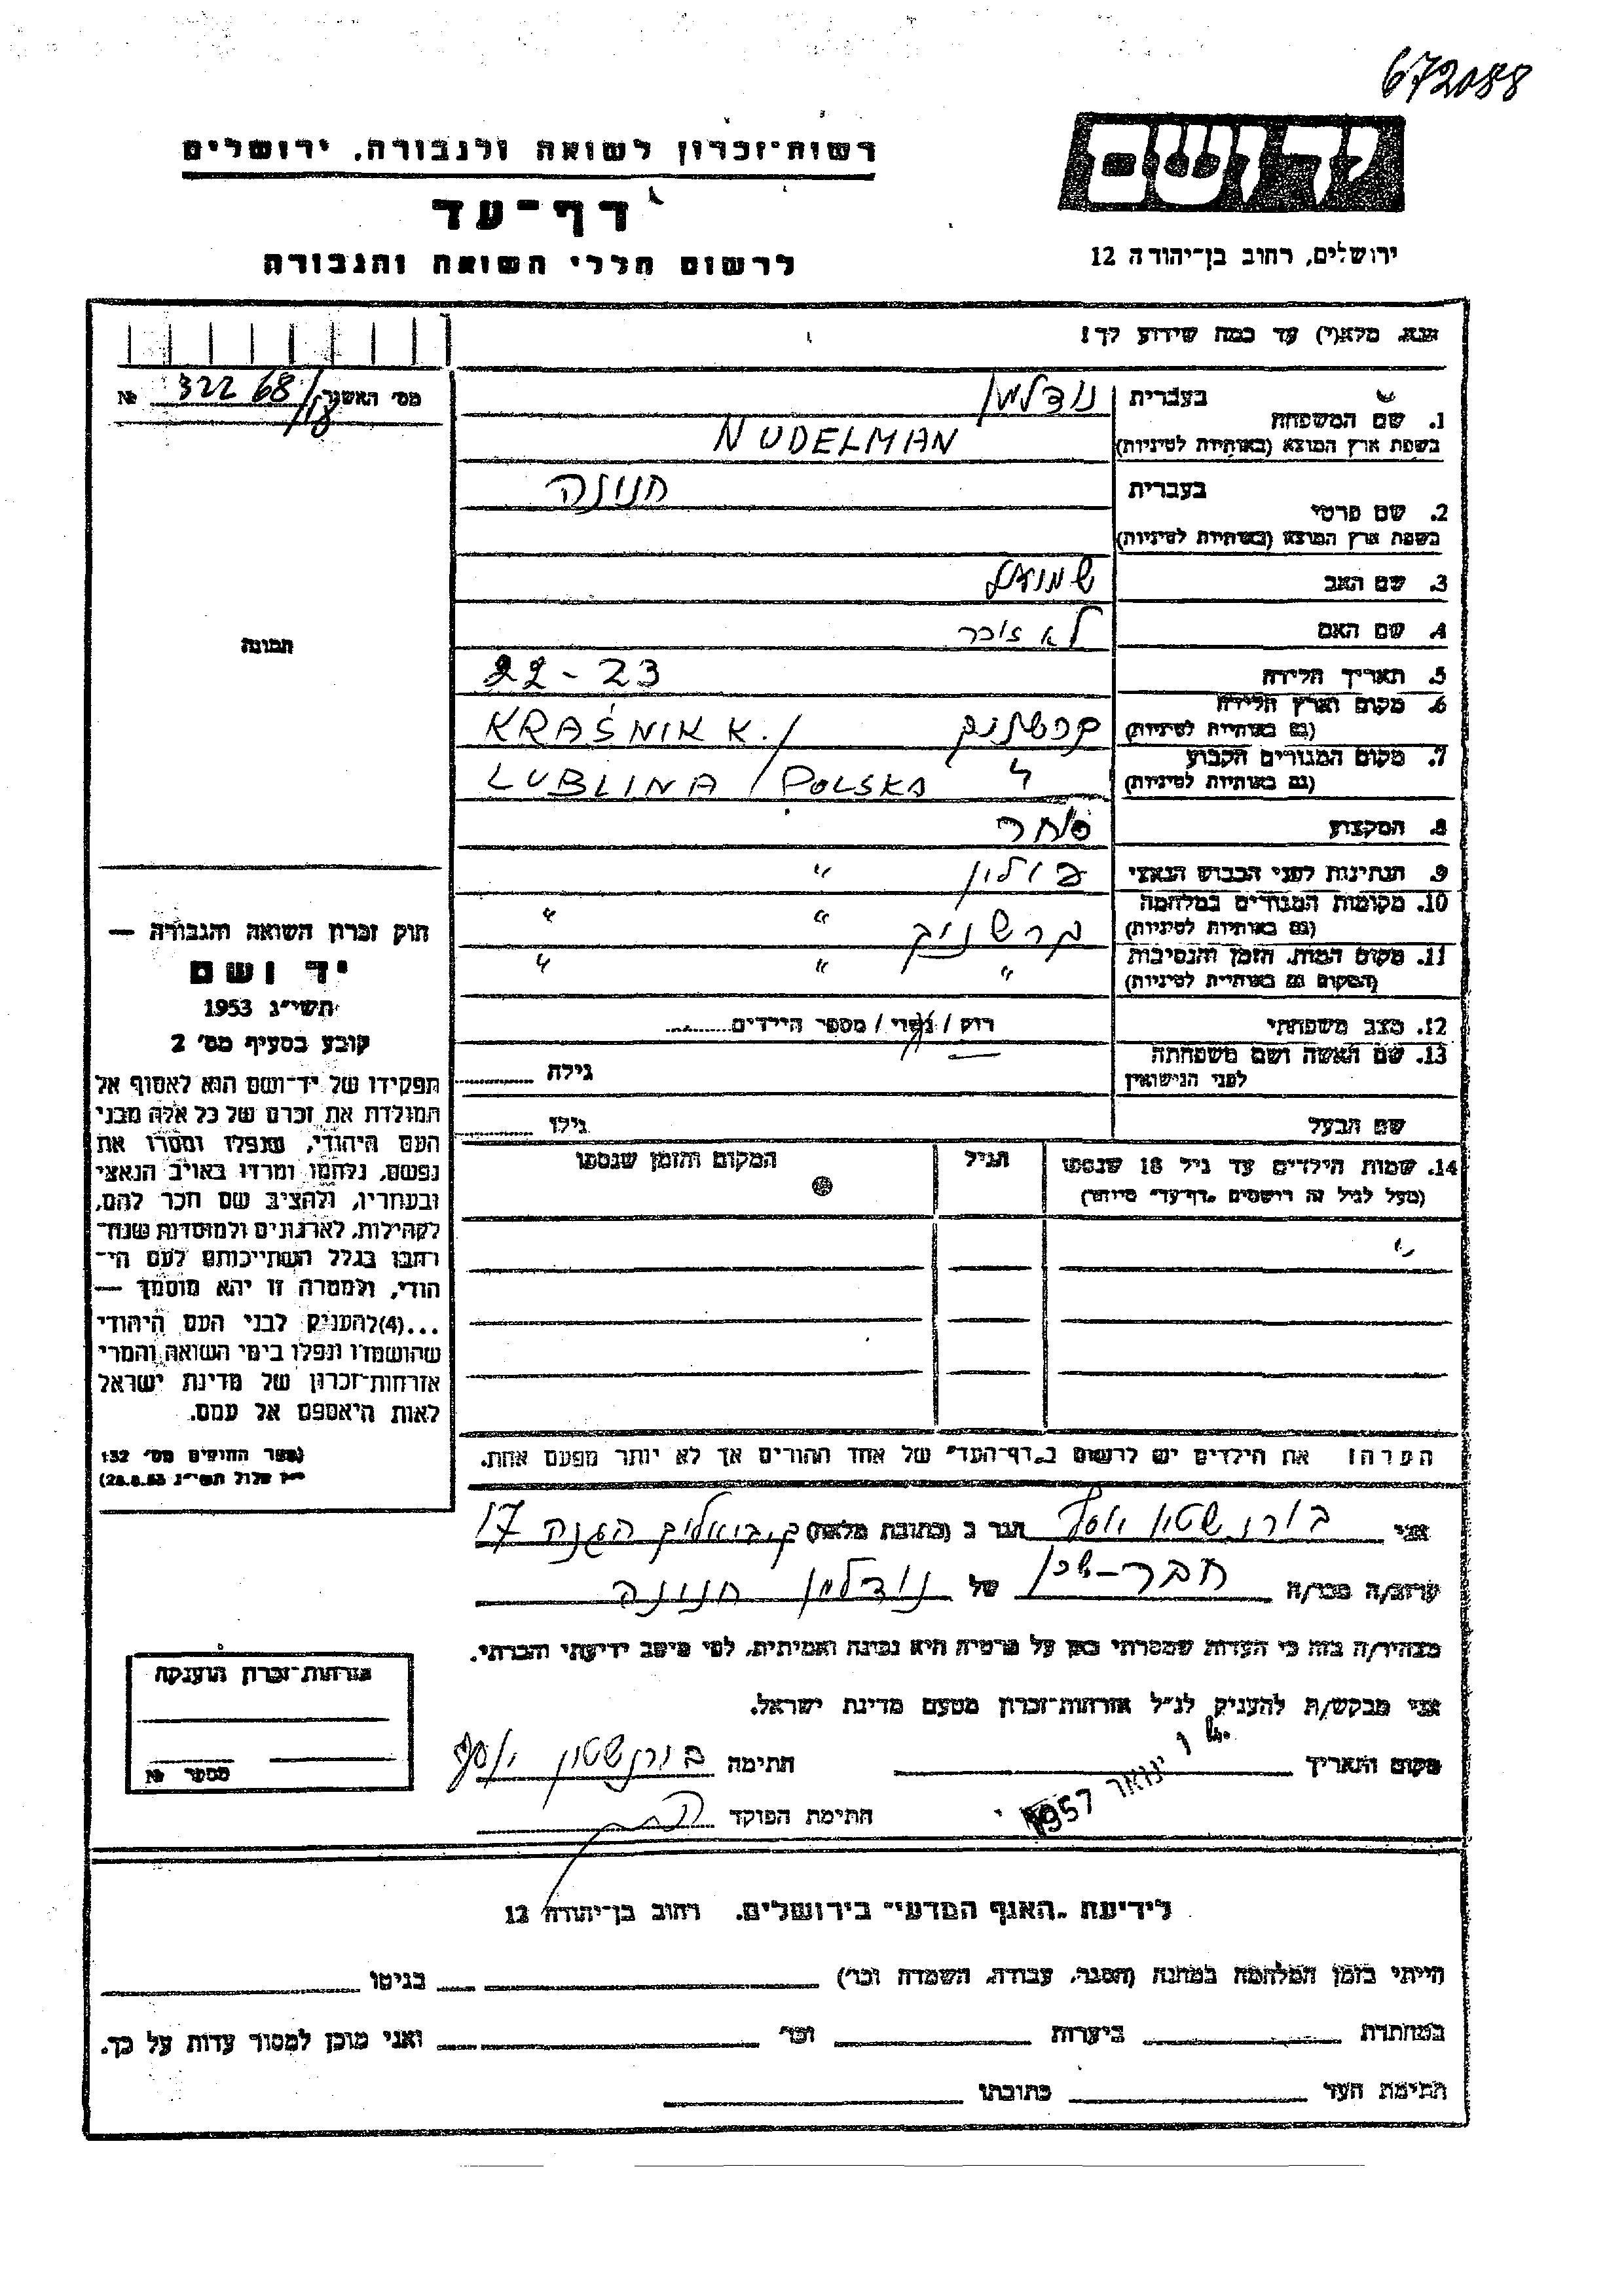 672088
יד ושם
רשות־זכרון לשואה ולגבורה, ירושלים
דף־עד
לרשום חללי השואה והגבורה
ירושלים, רחוב בן־יהודה 12
נא מלא(י) עד כמה שידוע לך!
מס׳ האשנב 322 68/ №
118
בעברית נודלמן
1. שם המשפחה
בשפת ארץ המוצא (באותיות לטיניות) NUDELMAN
בעברית חנונה
2. שם פרטי
בשפת ארץ המוצא (באותיות לטיניות)
3. שם האב שמואל
4. שם האם לא זוכר
5. תאריך הלידה 22 - 23
6. מקום וארץ הלידה
(גם באותיות לטיניות) קרשניק KRAŚNIK K./
7. מקום המגורים הקבוע
(גם באותיות לטיניות) LUBLINA / POLSKA
8. המקצוע סוחר
9. הנתינות לפני הכבוש הנאצי פולין "
10. מקומות המגורים במלחמה " "
(גם באותיות לטיניות) קרשניק
11. מקום המות, הזמן והנסיבות " " "
(המקום גם באותיות לטיניות)
12. מצב משפחתי רוק / נשוי / מספר הילדים
13. שם האשה ושם משפחתה גילה
לפני הנישואין
שם הבעל גילו
14. שמות הילדים עד גיל 18 שנספו הגיל המקום והזמן שנספו
(מעל לגיל זה רושמים „דף־עד״ מיוחד)
הערה! את הילדים יש לרשום ב„דף־העד״ של אחד ההורים אך לא יותר מפעם אחת.
תמונה
חוק זכרון השואה והגבורה —
יד ושם
תשי״ג 1953
קובע בסעיף מס׳ 2
תפקידו של יד־ושם הוא לאסוף אל
המולדת את זכרם של כל אלה מבני
העם היהודי, שנפלו ומסרו את
נפשם, נלחמו ומרדו באויב הנאצי
ובעוזריו, ולהציב שם וזכר להם,
לקהילות, לארגונים ולמוסדות שנח־
רבו בגלל השתייכותם לעם הי־
הודי, ולמטרה זו יהא מוסמך —
...(4)להעניק לבני העם היהודי
שהושמדו ונפלו בימי השואה והמרי
אזרחות־זכרון של מדינת ישראל
לאות היאספם אל עמם.
(ספר החוקים מס׳ 132
אני בורנשטין יוסף הגר ב (כתובת מלאה) ק. ביאליק הגנה 17
קרוב/ה מכר/ה חבר - שכן של נודלמן חנונה
מצהיר/ה בזה כי העדות שמסרתי כאן על פרטיה היא נכונה ואמיתית, לפי מיטב ידיעתי והכרתי.
אני מבקש/ת להעניק לנ״ל אזרחות־זכרון מטעם מדינת ישראל.
מקום ותאריך ינואר 1957 חתימה בורנשטין יוסף
חתימת הפוקד
אזרחות־זכרון הוענקה
מספר №
לידיעת „האגף המדעי״ בירושלים. רחוב בן־יהודה 12
הייתי בזמן המלחמה במחנה (הסגר, עבודה, השמדה וכו׳) בגיטו
במחתרת ביערות וכו׳ ואני מוכן למסור עדות על כך.
חתימת העד כתובתו